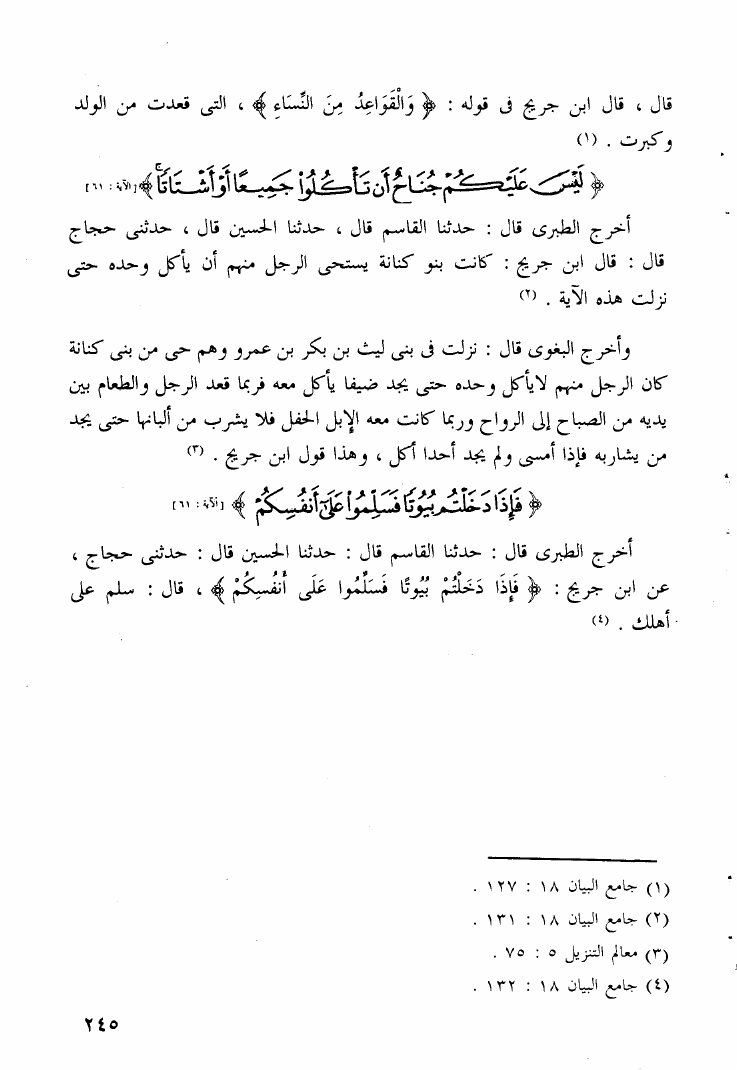 قال ، قال ابن جريج فى قوله : ﴿ وَالْقَوَاعِدُ مِنَ النِّسَاءِ ﴾ ، التى قعدت من الولد
وكبرت . (١)
﴿ لَيْسَ عَلَيْكُمْ جُنَاحٌ أَن تَأْكُلُوا۟ جَمِيعًا أَوْ أَشْتَاتًا ۚ ﴾ [الآية : ٦١]
أخرج الطبرى قال : حدثنا القاسم قال ، حدثنا الحسين قال ، حدثنى حجاج
قال : قال ابن جريج : كانت بنو كنانة يستحى الرجل منهم أن يأكل وحده حتى
نزلت هذه الآية . (٢)
وأخرج البغوى قال : نزلت فى بنى ليث بن بكر بن عمرو وهم حى من بنى كنانة
كان الرجل منهم لايأكل وحده حتى يجد ضيفا يأكل معه فربما قعد الرجل والطعام بين
يديه من الصباح إلى الرواح وربما كانت معه الإبل الحفل فلا يشرب من ألبانها حتى يجد
من يشاربه فإذا أمسى ولم يجد أحدا أكل ، وهذا قول ابن جريج . (٣)
﴿ فَإِذَا دَخَلْتُم بُيُوتًا فَسَلِّمُوا۟ عَلَىٰٓ أَنفُسِكُمْ ﴾ [الآية : ٦١]
أخرج الطبرى قال : حدثنا القاسم قال : حدثنا الحسين قال : حدثنى حجاج ،
عن ابن جريج : ﴿ فَإِذَا دَخَلْتُمْ بُيُوتًا فَسَلِّمُوا عَلَى أَنْفُسِكُمْ ﴾ ، قال : سلم على
أهلك . (٤)
(١) جامع البيان ١٨ : ١٢٧ .
(٢) جامع البيان ١٨ : ١٣١ .
(٣) معالم التنزيل ٥ : ٧٥ .
(٤) جامع البيان ١٨ : ١٣٢ .
٢٤٥